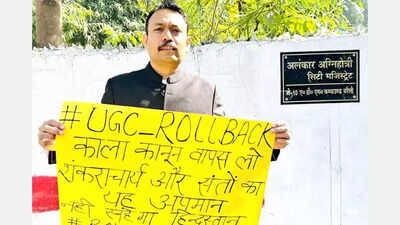 अलंकार अग्निहोत्री
सिटी मजिस्ट्रेट
बरेली
#UGC_ROLLBACK
काला कानून वापस लो
शंकराचार्य और संतों का
यह अपमान
नहीं सहेगा हिन्दुस्तान
#